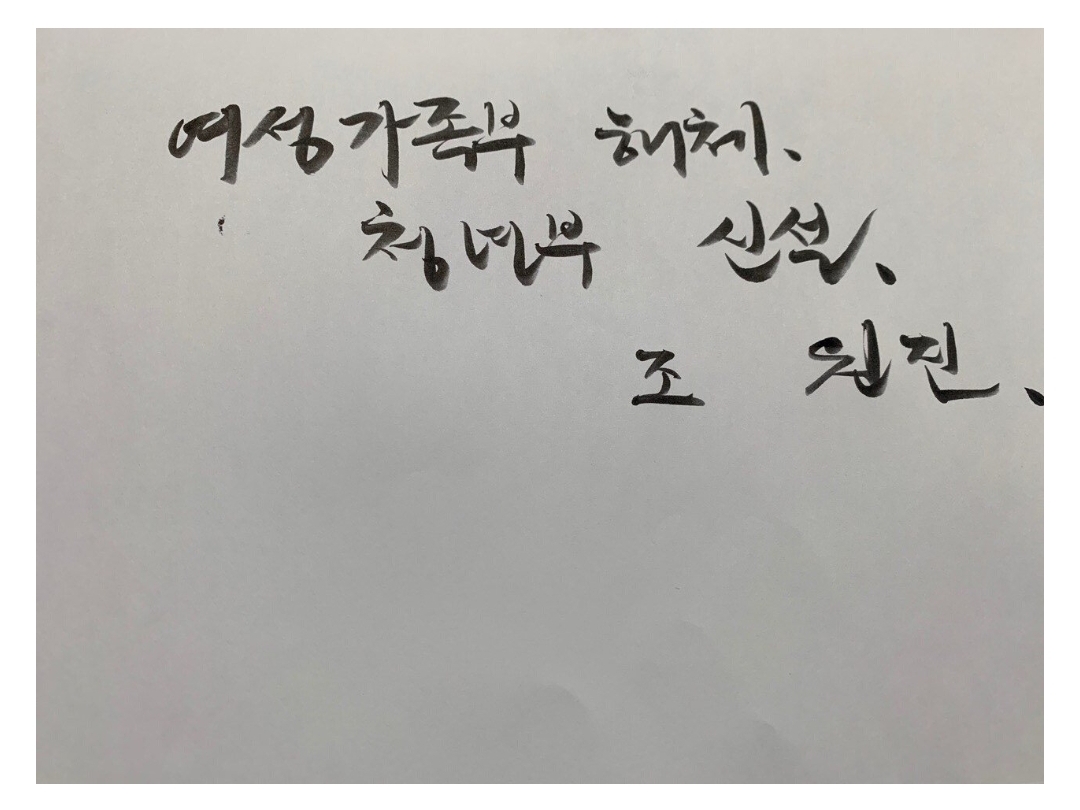 여성가족부 해체.
청년부 신설.
조 원진.